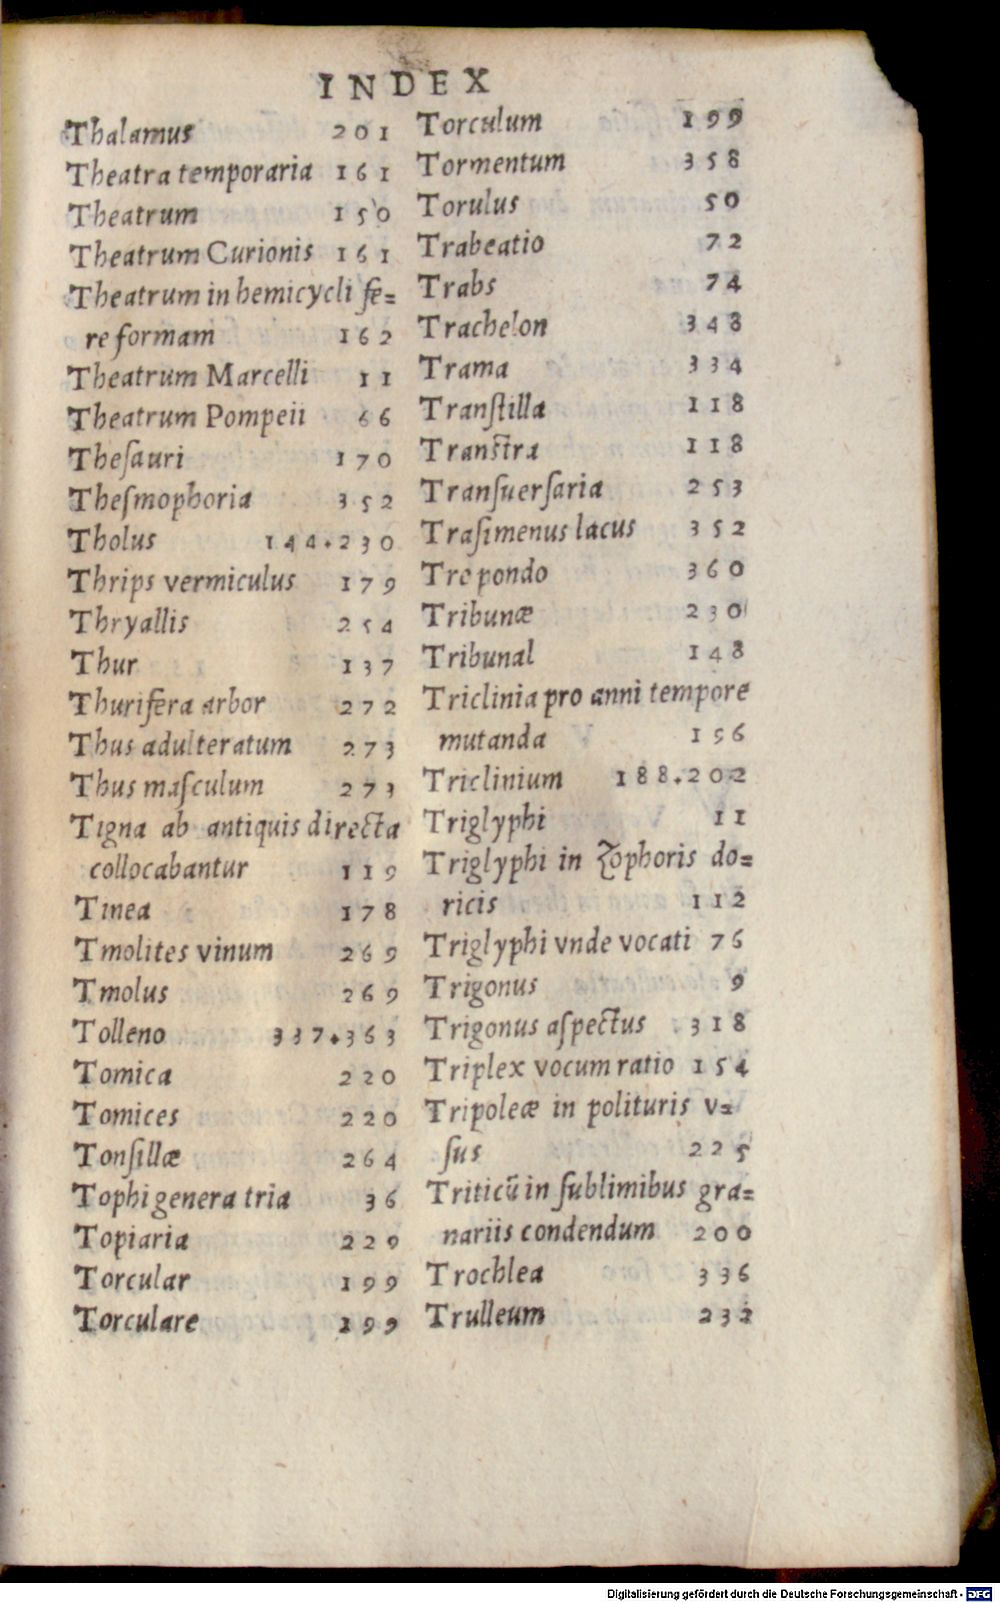 INDEX
Thalamus 201
Theatra temporaria 161
Theatrum 150
Theatrum Curionis 161
Theatrum in hemicycli fe=
re formam 162
Theatrum Marcelli 11
Theatrum Pompeii 66
Theſauri 170
Theſmophoria 352
Tholus 144.230
Thrips vermiculus 179
Thryallis 254
Thur 137
Thurifera arbor 272
Thus adulteratum 273
Thus maſculum 273
Tigna ab antiquis directa
collocabantur 119
Tinea 178
Tmolites vinum 269
Tmolus 269
Tolleno 337.363
Tomica 220
Tomices 220
Tonſillæ 264
Tophi genera tria 36
Topiaria 229
Torcular 199
Torculare 199
Torculum 199
Tormentum 358
Torulus 50
Trabeatio 72
Trabs 74
Trachelon 348
Trama 334
Tranſtilla 118
Tranſtra 118
Tranſuerſaria 253
Traſimenus lacus 352
Trepondo 360
Tribunæ 230
Tribunal 148
Triclinia pro anni tempore
mutanda 196
Triclinium 188.202
Triglyphi 11
Triglyphi in Zophoris do=
ricis 112
Triglyphi vnde vocati 76
Trigonus 9
Trigonus aſpectus 318
Triplex vocum ratio 154
Tripoleæ in polituris v=
ſus 225
Triticū in ſublimibus gra=
nariis condendum 200
Trochlea 336
Trulleum 232
Digitalisierung gefördert durch die Deutsche Forschungsgemeinschaft - DFG